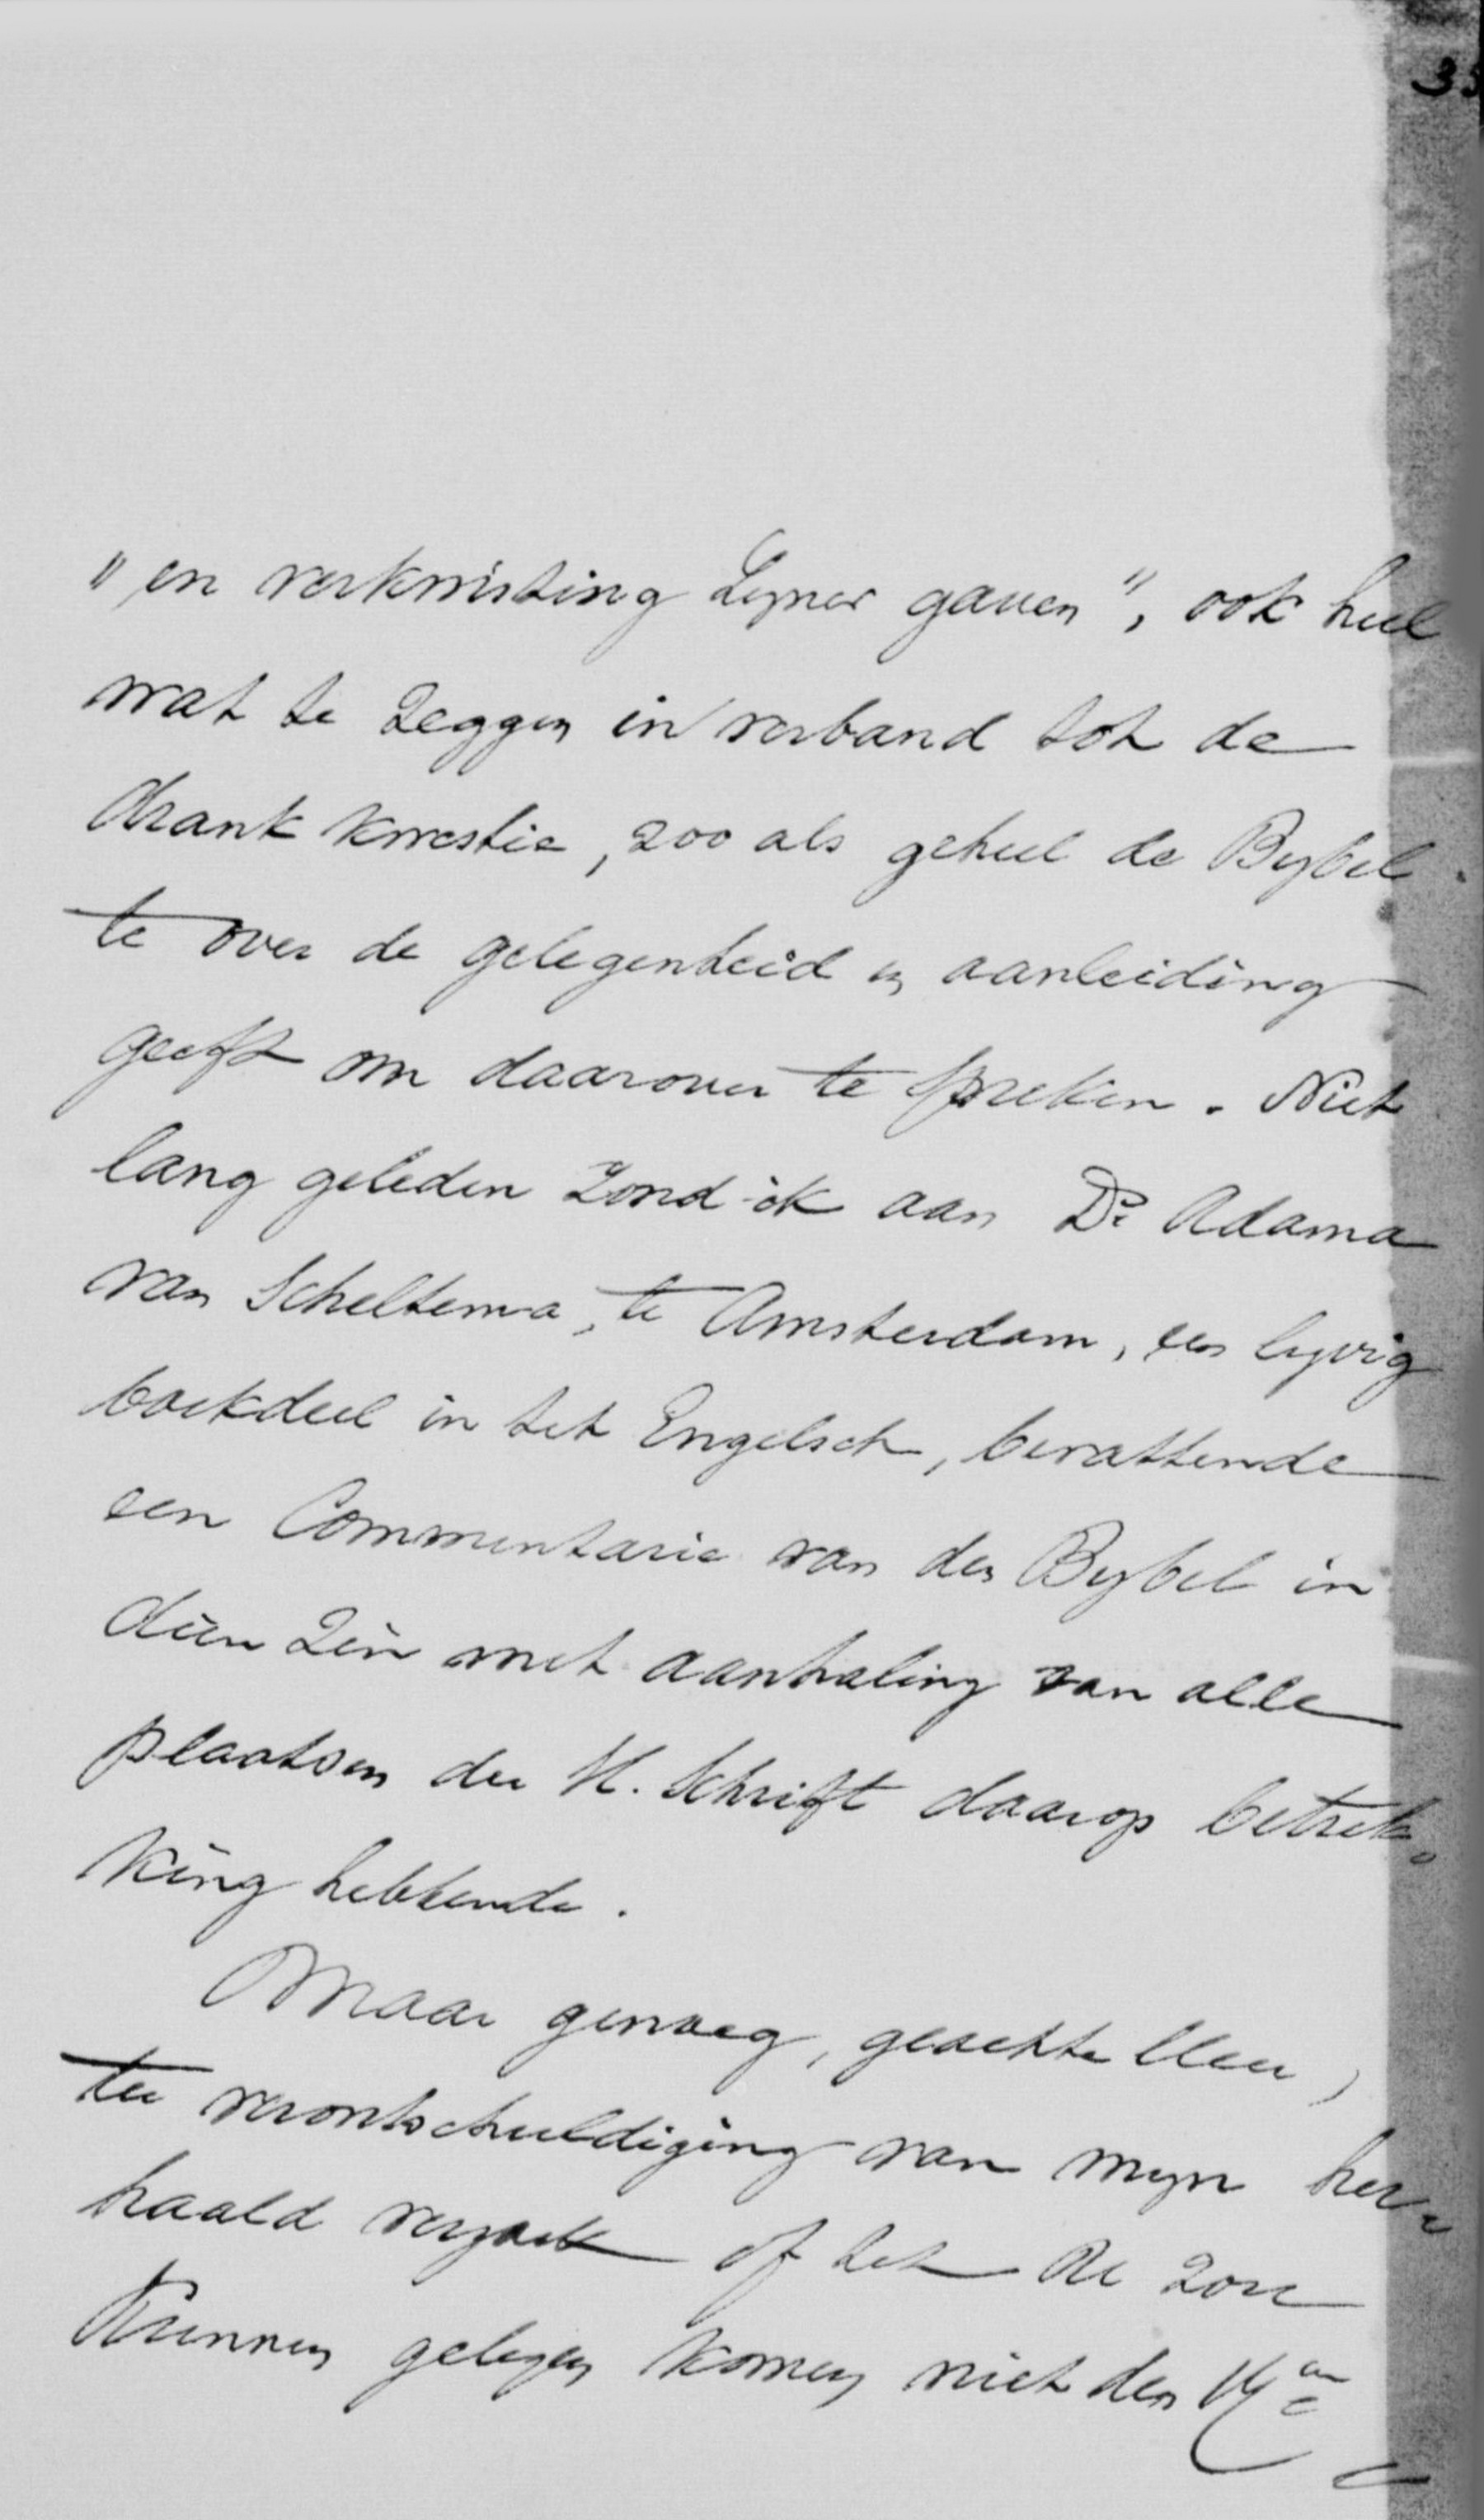 35
"en verkwisting Zyner gaven", ook heel
wat te zeggen in verband tot de
drank kwestie, zoo als geheel de Bybel
te over de gelegenheid en aanleiding
geeft om daarover te spreken. Niet
lang geleden zond ik aan Dr Adama
van Scheltema, te Amsterdam, een lyvig
boekdeel in het Engelsch, bevattende
een Commentarie van den Bybel in
dien zin met aanhaling van alle
plaatsen der H. Schrift daarop betrek„
king hebbende.
Maar genoeg, geachte Heer,
ter verontschuldiging van myn her„
haald verzoek of het UE zou
kunnen gelegen komen niet den 14en